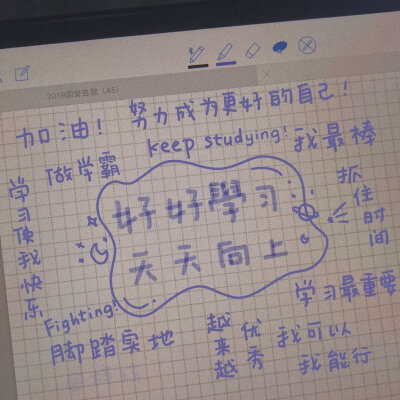 2019国营自我（A5）
加油！
努力成为更好的自己！
keep studying!
我最棒
做学霸
学习使我快乐
抓住时间
好好學习
天天向上
学习最重要
Fighting!
脚踏实地
越来越优秀
我可以
我能行